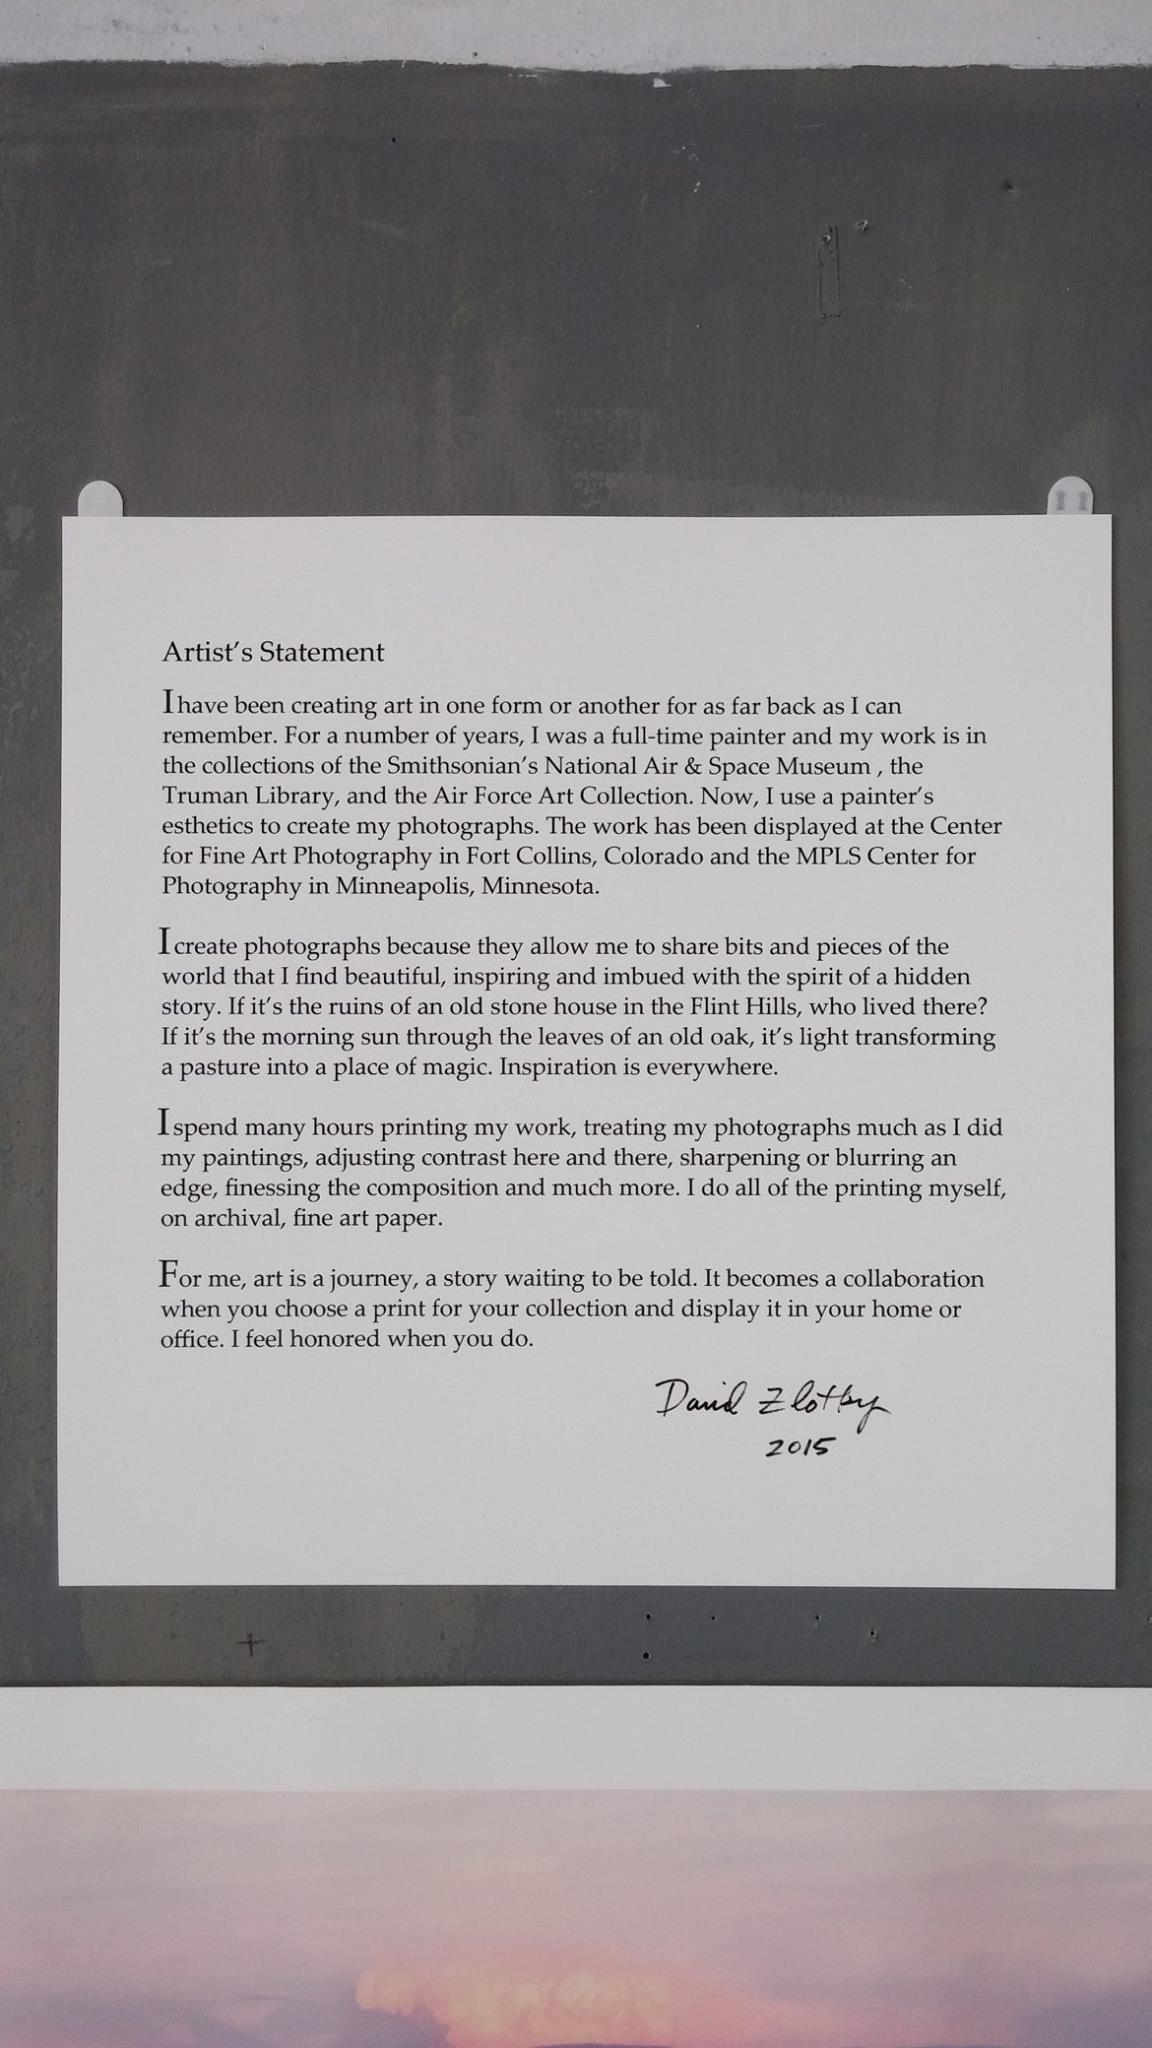 Artist's Statement
I have been creating art in one form or another for as far back as I can
remember. For a number of years, I was a full-time painter and my work is in
the collections of the Smithsonian's National Air & Space Museum , the
Truman Library, and the Air Force Art Collection. Now, I use a painter's
esthetics to create my photographs. The work has been displayed at the Center
for Fine Art Photography in Fort Collins, Colorado and the MPLS Center for
Photography in Minneapolis, Minnesota.
I create photographs because they allow me to share bits and pieces of the
world that I find beautiful, inspiring and imbued with the spirit of a hidden
story. If it's the ruins of an old stone house in the Flint Hills, who lived there?
If it's the morning sun through the leaves of an old oak, it's light transforming
a pasture into a place of magic. Inspiration is everywhere.
I spend many hours printing my work, treating my photographs much as I did
my paintings, adjusting contrast here and there, sharpening or blurring an
edge, finessing the composition and much more. I do all of the printing myself,
on archival, fine art paper.
For me, art is a journey, a story waiting to be told. It becomes a collaboration
when you choose a print for your collection and display it in your home or
office. I feel honored when you do.
David Zlotky
2015